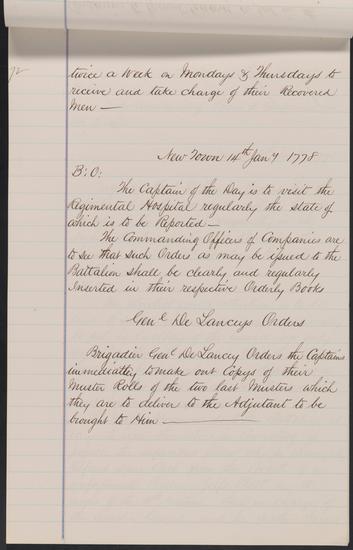 12
twice a Week on Mondays & Thursdays to
receive and take charge of their Recovered
Men —
New Town 14th Jany 1778
B: O:
The Captain of the Day is to visit the
Regimental Hospital regularly the state of
which is to be Reported —
The Commanding Officers of Companies are
to see that such Orders as may be issued to the
Battalion shall be clearly and regularly
Inserted in their respective Orderly Books
Genl De Lanceys Orders
Brigadier Genl De Lancey Orders the Captains
immediatley to make out Copys of their
Muster Rolls of the two last Musters which
they are to deliver to the Adjutant to be
brought to Him —